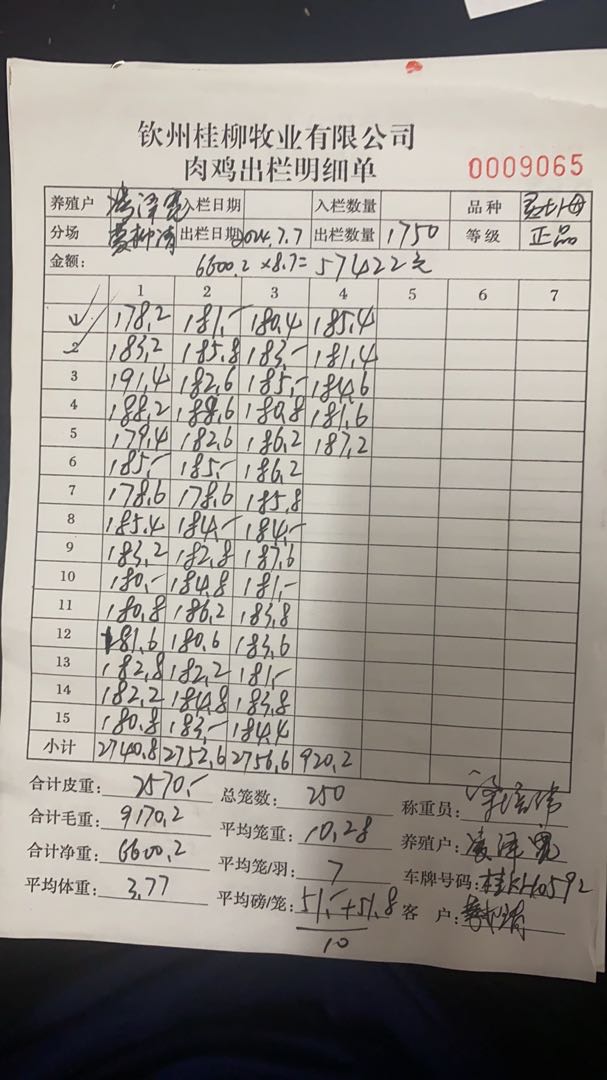 钦州桂柳牧业有限公司
肉鸡出栏明细单 0009065
养殖户 凌泽宽 入栏日期 入栏数量 品种
分场 出栏日期 2024.7.7 出栏数量 1750 等级 正品
金额: 6600.2×8.7=57422元
1 2 3 4 5 6 7
1 178.2 181.- 180.4 185.4
2 183.2 185.8 183.- 181.4
3 191.4 182.6 185.- 184.6
4 188.2 188.6 180.8 181.6
5 179.4 182.6 186.2 187.2
6 185.- 185.- 186.2
7 178.6 178.6 185.8
8 185.4 184.- 184.-
9 183.2 182.8 187.6
10 180.- 184.8 181.-
11 180.8 186.2 183.8
12 181.6 180.6 183.6
13 182.8 182.2 181.-
14 182.2 184.8 183.8
15 180.8 183.- 184.4
小计 2740.8 2752.6 2756.6 920.2
合计皮重: 2570.- 总笼数: 250 称重员:
合计毛重: 9170.2 平均笼重: 10.28 养殖户: 凌泽宽
合计净重: 6600.2 平均笼/羽: 7 车牌号码: 桂KH0592
平均体重: 3.77 平均磅/笼: 51.-+51.8 客户:
10